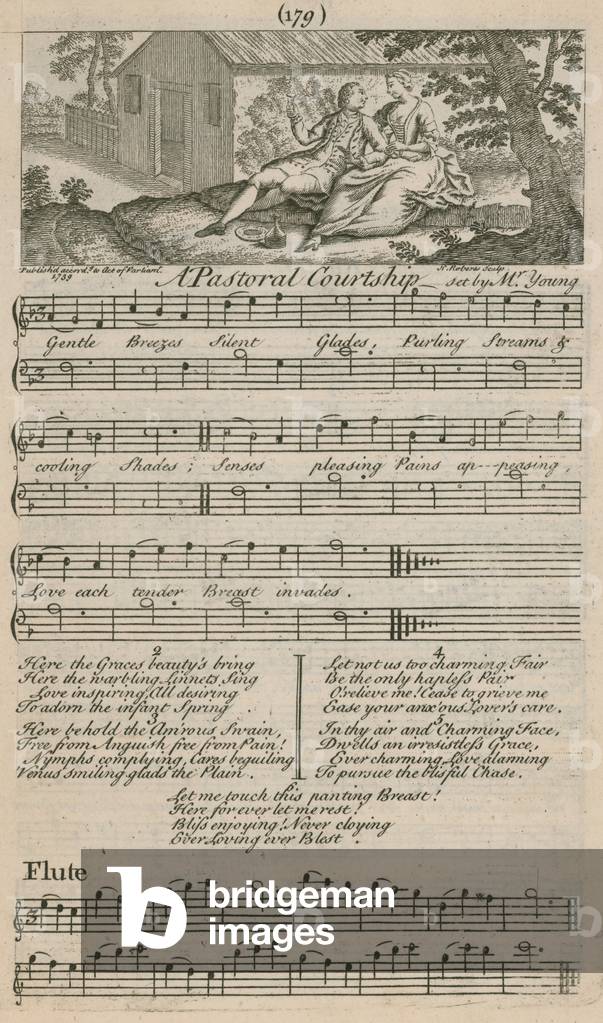 (179)
Publish'd accord.g to Act of Parliam.t
1739
R. Roberts Sculp
A Pastoral Courtship set by Mr. Young
Gentle Breezes Silent Glades, Purling Streams &
cooling Shades; Senses pleasing Pains ap---peasing,
Love each tender Breast invades.
2
Here the Graces beauty's bring
Here the warbling Linnets Sing
Love inspiring, All desiring
To adorn the infant Spring.
3
Here behold the Am'rous Swain,
Free from Anguish free from Pain!
Nymphs complying, Cares beguiling
Venus smiling glads the Plain.
4
Let not us too charming Fair
Be the only hapless Pair
O! relieve me! Cease to grieve me
Ease your anxious Lover's care.
5
In thy air and Charming Face,
Dwells an irresistless Grace,
Ever charming, Love alarming
To pursue the blisful Chase.
Let me touch this panting Breast!
Here for ever let me rest!
Bliss enjoying! Never cloying
Ever Loving ever Blest.
Flute
b bridgeman
images